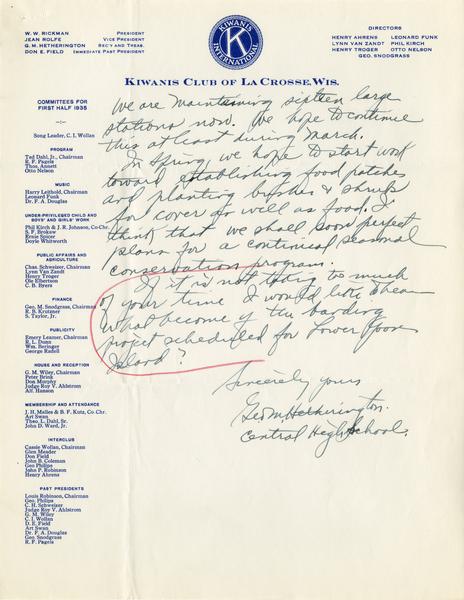 W. W. RICKMAN PRESIDENT
JEAN ROLFE VICE PRESIDENT
G. M. HETHERINGTON SECY AND TREAS.
DON E. FIELD IMMEDIATE PAST PRESIDENT
KIWANIS
K
INTERNATIONAL
DIRECTORS
HENRY AHRENS LEONARD FUNK
LYNN VAN ZANDT PHIL KIRCH
HENRY TROGER OTTO NELSON
GEO. SNODGRASS
KIWANIS CLUB OF LA CROSSE, WIS.
COMMITTEES FOR
FIRST HALF 1935
Song Leader, C. I. Wollan
PROGRAM
Tad Dahl, Jr., Chairman
R. F. Pagels
Thos. Annett
Otto Nelson
MUSIC
Harry Leithold, Chairman
Leonard Funk
Dr. F. A. Douglas
UNDER-PRIVILEGED CHILD AND
BOYS' AND GIRLS' WORK
Phil Kirch & J. R. Johnson, Co-Chr.
S. F. Brokaw
Ernie Spicer
Doyle Whitworth
PUBLIC AFFAIRS AND
AGRICULTURE
Chas. Schweizer, Chairman
Lynn Van Zandt
Henry Troger
Ole Elbertson
C. B. Byers
FINANCE
Geo. M. Snodgrass, Chairman
R. B. Krutzner
S. Taylor, Jr.
PUBLICITY
Emery Leamer, Chairman
R. L. Dunn
Wm. Beringer
George Rudell
HOUSE AND RECEPTION
G. M. Wiley, Chairman
Peter Brink
Don Murphy
Judge Roy V. Ahlstrom
Alf. Hanson
MEMBERSHIP AND ATTENDANCE
J. H. Malles & B. F. Kutz, Co Chr.
Art Swan
Theo. L. Dahl, Sr.
John D. Ward, Jr.
INTERCLUB
Cassie Wollan, Chairman
Glen Meader
Don Field
John B. Coleman
Geo Philips
John P. Robinson
Henry Ahrens
PAST PRESIDENTS
Louis Robinson, Chairman
Geo. Philips
C. H. Schweizer
Judge Roy V. Ahlstrom
G. M. Wiley
C. I. Wollan
D. E. Field
Art Swan
Dr. F. A. Douglas
Geo. Snodgrass
R. F. Pagels
We are maintaining sixteen large
stations now. We hope to continue
this at least during March.
In Spring, we hope to start work
toward establishing food patches
and planting brushes & shrubs
for cover as well as food. I
think that we shall soon perfect
plans for a continual seasonal
conservation program.
If it is not taking to much
of your time I would like to hear
what become of the banding
project scheduled for Lower Goose
Island?
Sincerely yours
Geo M. Hetherington.
Central High School.